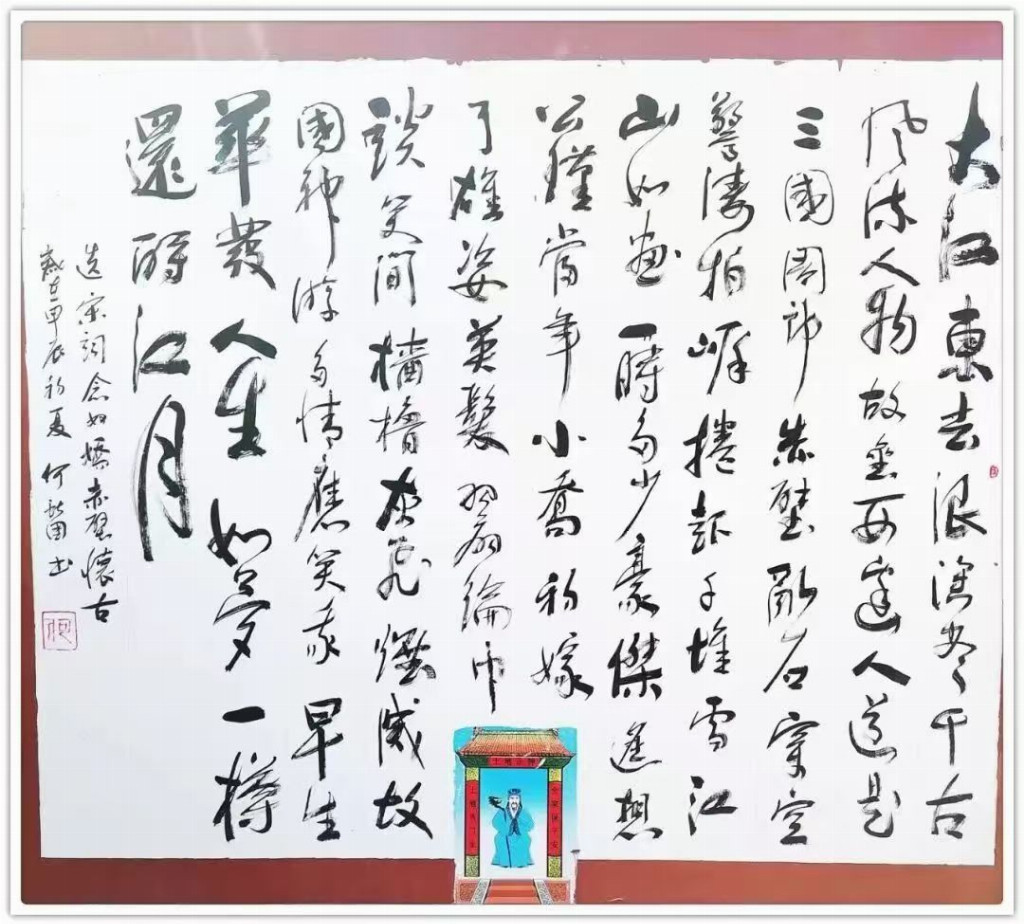 大江東去浪淘尽千古
风流人物故壘西邊人道是
三國周郎赤壁乱石穿空
驚濤拍岸捲起千堆雪江
山如畫一時多少豪傑遙想
公瑾當年小喬初嫁
了雄姿英髮羽扇綸巾
談笑間檣櫓灰飛煙滅故
國神游多情應笑我早生
華發人生如夢一樽
還酹江月
选宋詞念奴嬌赤壁懷古
歲在甲辰初夏 何书